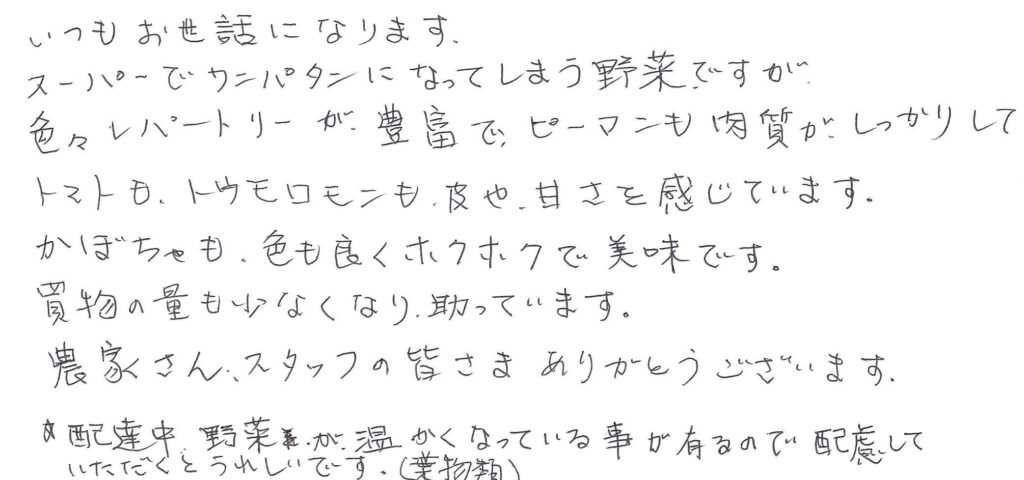 いつもお世話になります.
スーパーでワンパタンになってしまう野菜ですが、
色々レパートリーが、豊富で、ピーマンも肉質が、しっかりして
トマトも、トウモロモシも、皮や、甘さを感じています。
かぼちゃも、色も良くホクホクで美味です。
買物の量も少なくなり、助っています。
農家さん、スタッフの皆さま ありがとうございます.
☆配達中、野菜が、温かくなっている事が有るので配慮して
いただくとうれしいです。(葉物類)